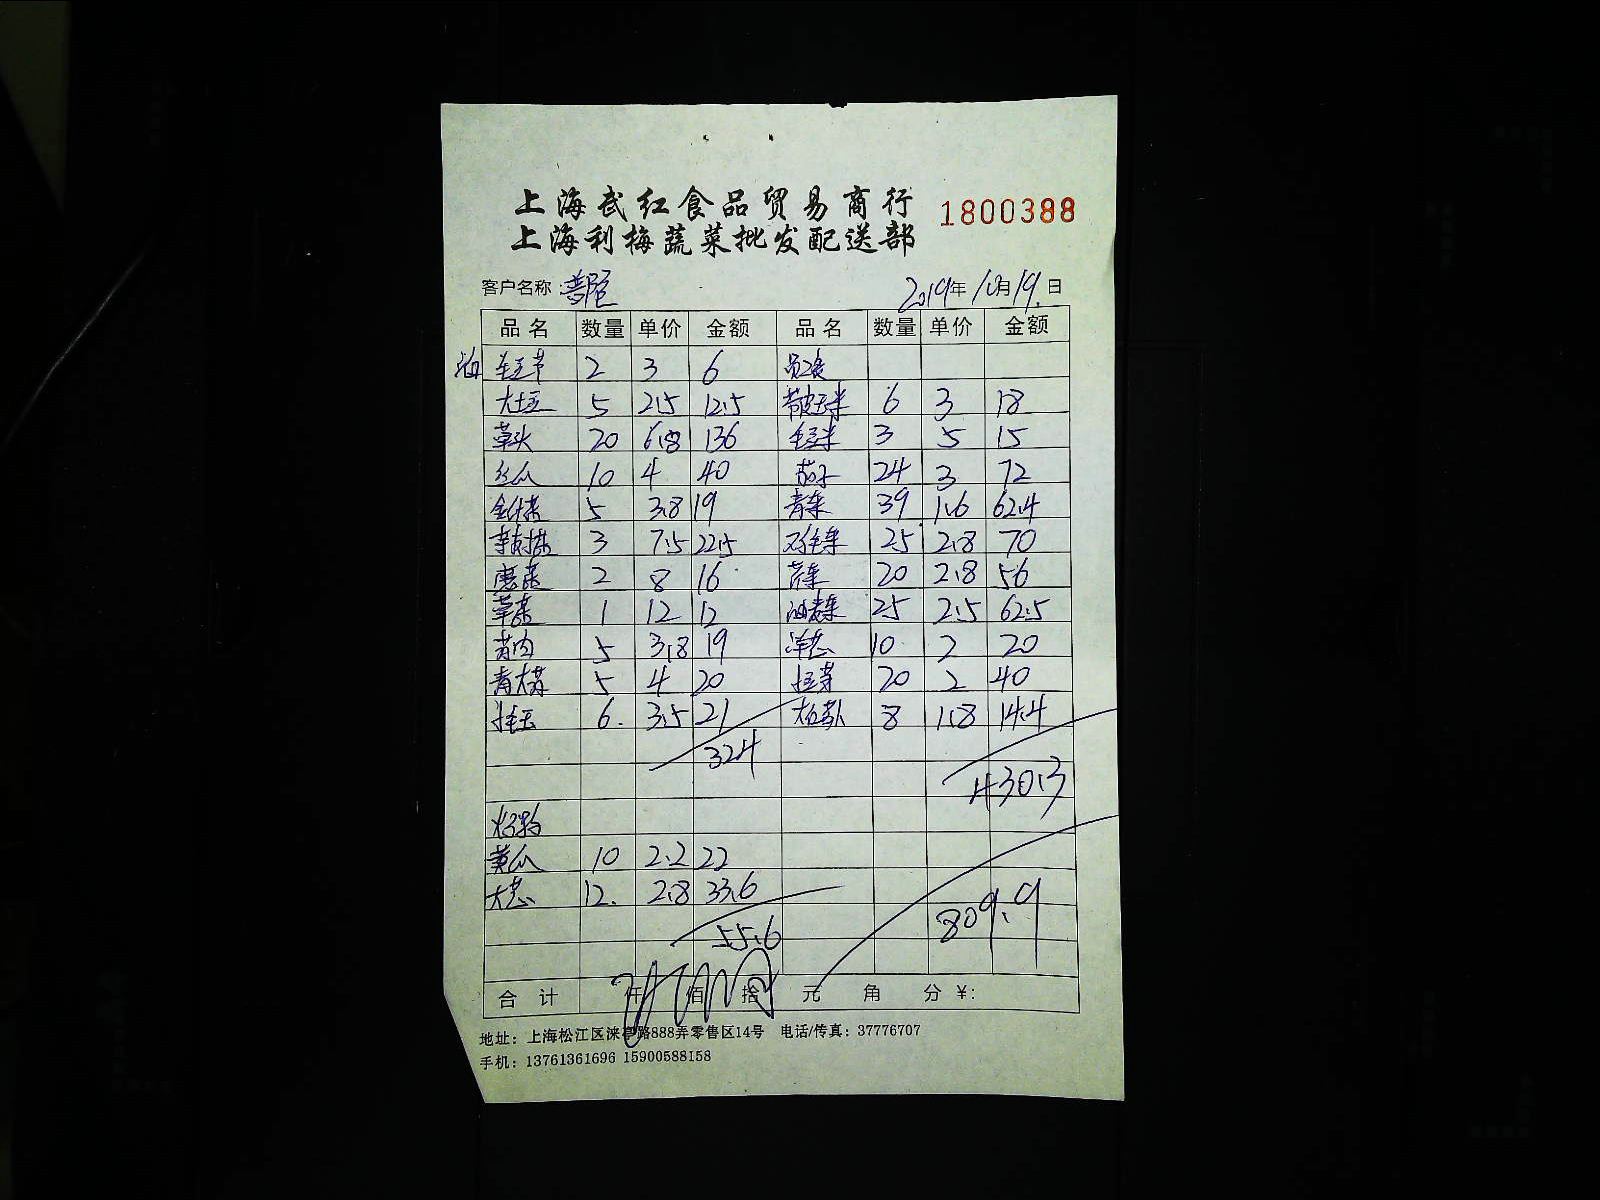 上海武红食品贸易商行 1800388
上海利梅蔬菜批发配送部
客户名称: 2019年10月19日
品名 数量 单价 金额 品名 数量 单价 金额
2 3 6
大土豆 5 2.5 12.5 6 3 18
草头 20 6.8 136 毛豆米 3 5 15
丝瓜 10 4 40 茄子 24 3 72
金针菇 5 3.8 19 青菜 39 1.6 62.4
3 7.5 22.5 25 2.8 70
2 8 16 20 2.8 56
草菇 1 12 12 油麦菜 25 2.5 62.5
5 3.8 19 洋葱 10 2 20
青大蒜 5 4 20 20 2 40
6 3.5 21 8 1.8 14.4
324
430.3
黄瓜 10 2.2 22
大葱 12 2.8 33.6
55.6
809.9
合计 仟 佰 拾 元 角 分 ¥:
地址: 上海松江区涞亭路888弄零售区14号 电话/传真: 37776707
手机: 13761361696 15900588158